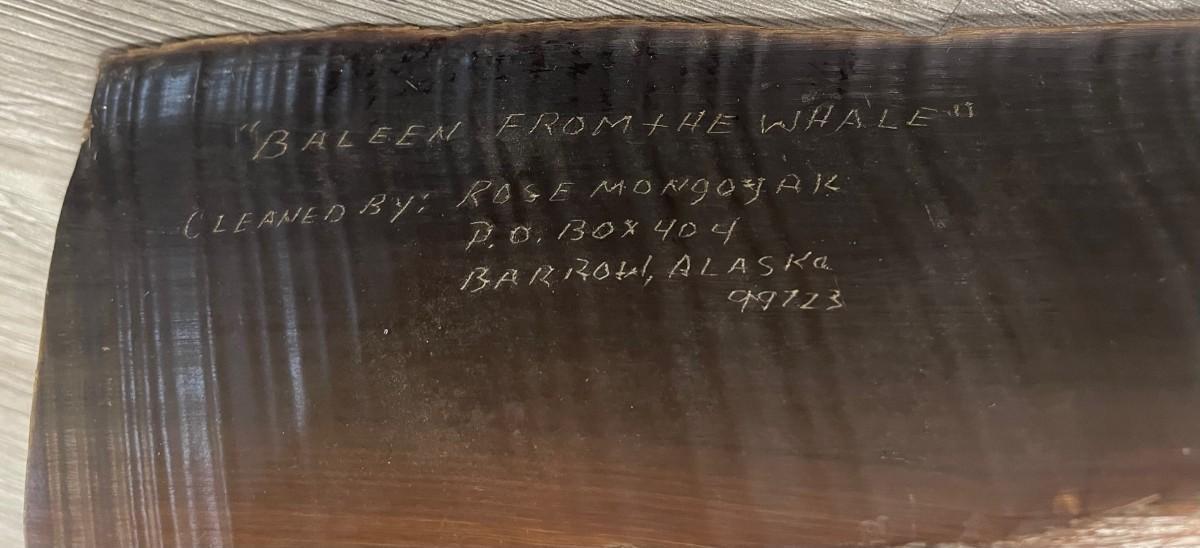 "BALEEN FROM tHE WHALE"
CLEANED BY: ROSE MONgOyAK
P.O. BOX 404
BARROW, ALASKa
99723